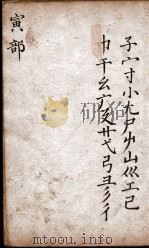 子宀寸小尢尸屮山巛工己
巾干幺广廴廾弋弓彐彡彳
寅部